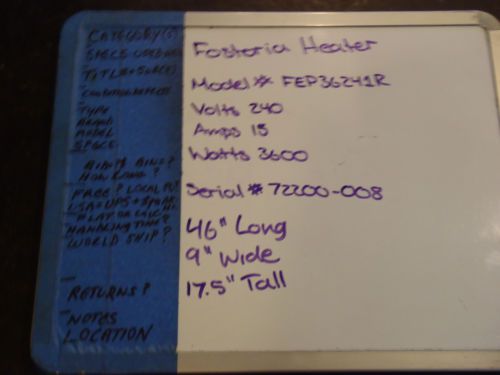 CATEGORY(S)
Fostoria Heater
TITLE +
Model # FEP36241R
TYPE
Volts 240
BRAND
MODEL
Amps 15
SPECS
Watts 3600
HOW LONG?
FREE? LOCAL PU?
Serial # 72200-008
USA = UPS +
FLAT OR CALC
HANDLING TIME?
WORLD SHIP?
46" Long
9" Wide
17.5" Tall
RETURNS?
NOTES
LOCATION